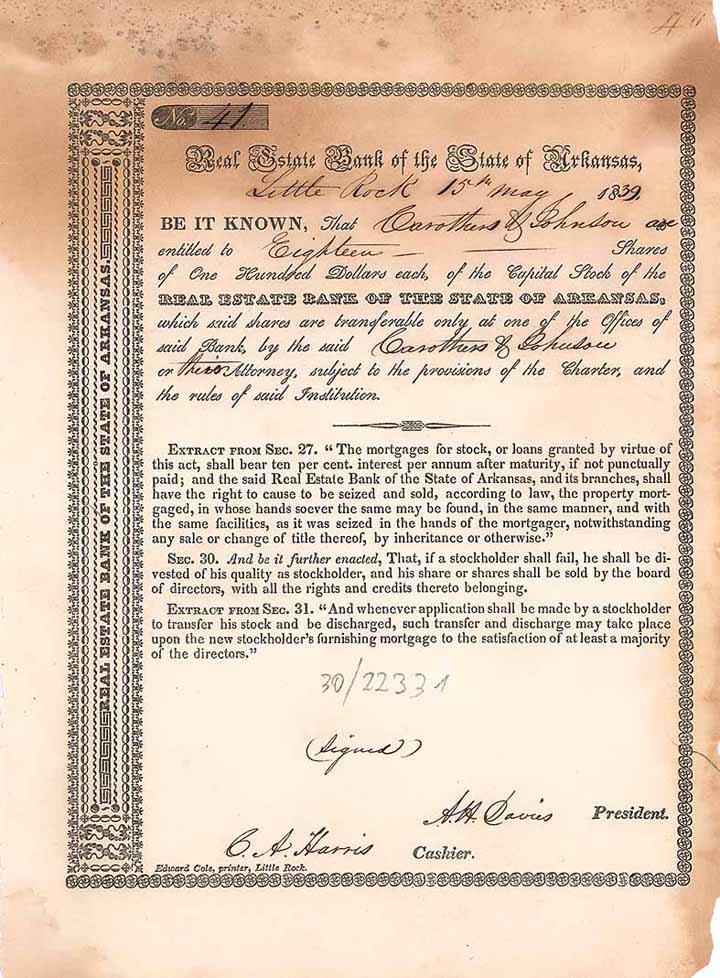 4
No. 41.
Real Estate Bank of the State of Arkansas,
Little Rock 15th May 1839
BE IT KNOWN, That Carothers & Johnson are
entitled to Eighteen — Shares
of One Hundred Dollars each, of the Capital Stock of the
REAL ESTATE BANK OF THE STATE OF ARKANSAS,
which said shares are transferable only at one of the Offices of
said Bank, by the said Carothers & Johnson
or their Attorney, subject to the provisions of the Charter, and
the rules of said Institution.
EXTRACT FROM SEC. 27. "The mortgages for stock, or loans granted by virtue of
this act, shall bear ten per cent. interest per annum after maturity, if not punctually
paid; and the said Real Estate Bank of the State of Arkansas, and its branches, shall
have the right to cause to be seized and sold, according to law, the property mort-
gaged, in whose hands soever the same may be found, in the same manner, and with
the same facilities, as it was seized in the hands of the mortgager, notwithstanding
any sale or change of title thereof, by inheritance or otherwise."
SEC. 30. And be it further enacted, That, if a stockholder shall fail, he shall be di-
vested of his quality as stockholder, and his share or shares shall be sold by the board
of directors, with all the rights and credits thereto belonging.
EXTRACT FROM SEC. 31. "And whenever application shall be made by a stockholder
to transfer his stock and be discharged, such transfer and discharge may take place
upon the new stockholder's furnishing mortgage to the satisfaction of at least a majority
of the directors."
30/22331
(Signed)
A.H. Davies President.
C. A. Harris Cashier.
Edward Cole, printer, Little Rock.
REAL ESTATE BANK OF THE STATE OF ARKANSAS.